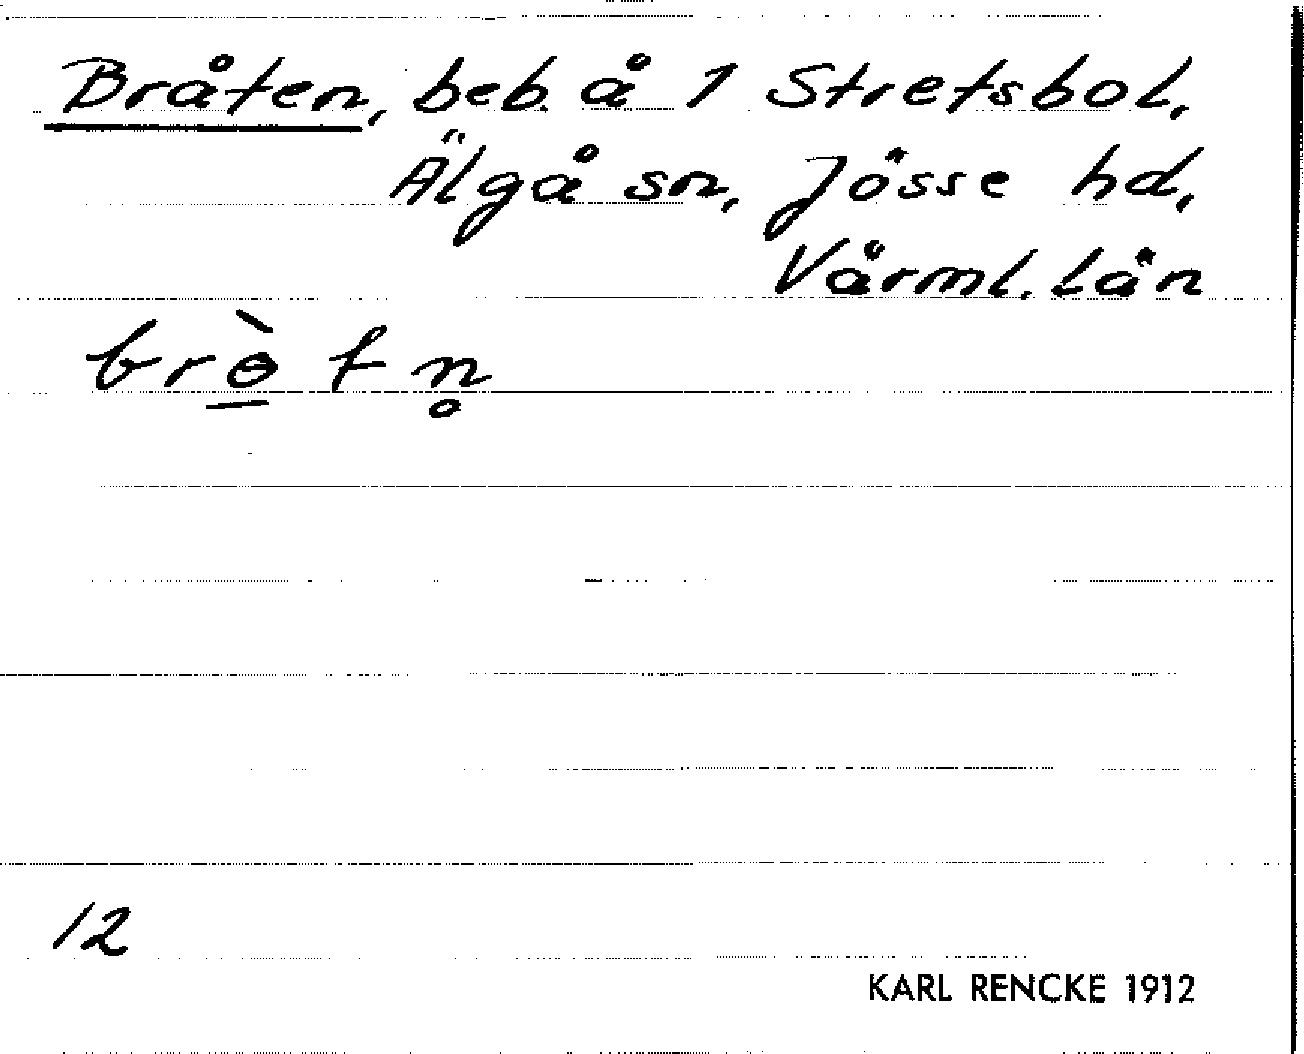 Bråten, beb. å 1 Stretsbol,
Älgå sn, Jösse hd,
Värml. län
brɵ̱̀tn̥
12
KARL RENCKE 1912